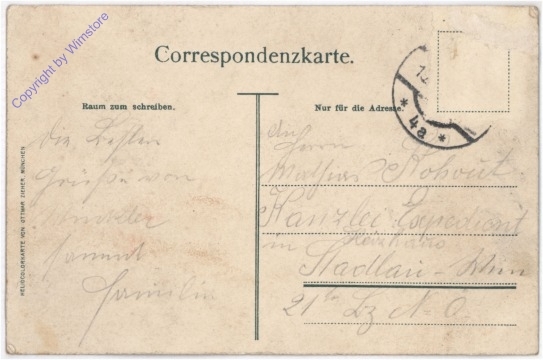 Copyright by Wimstore
Correspondenzkarte.
Raum zum schreiben.
Nur für die Adresse.
* 4a *
HELIOCOLORKARTE VON OTTMAR ZIEHER, MÜNCHEN
die besten
Grüße von
sammt
Familie
An
Herrn
Mathias Kohout
Kanzlei Expedient
in
Stadlau - Wien
21ter Bz N. Ö.